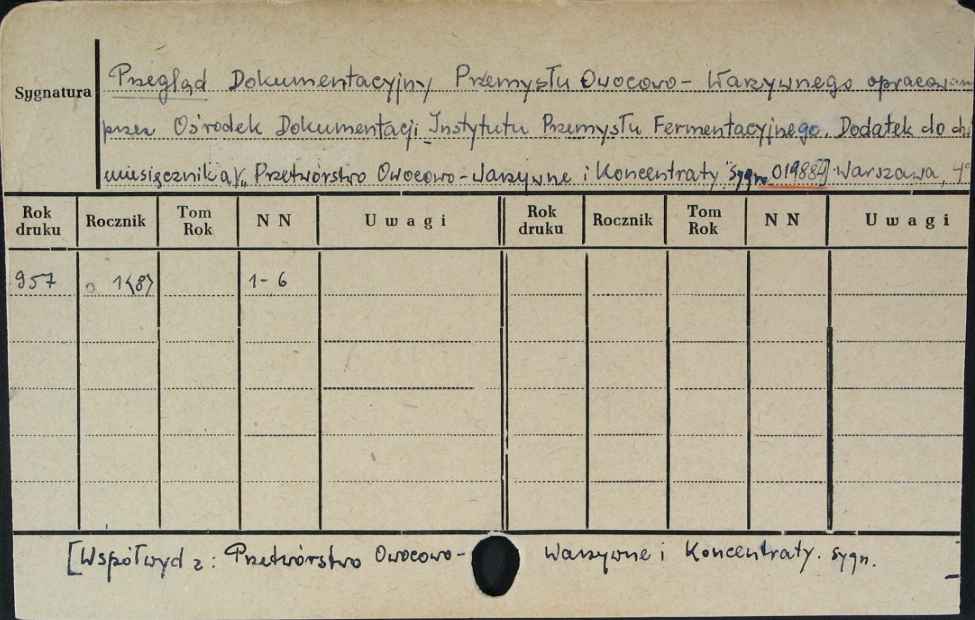 Przegląd Dokumentacyjny Przemysłu Owocowo-Warzywnego
Sygnatura
przez Ośrodek Dokumentacji Instytutu Przemysłu Fermentacyjnego. Dodatek do
miesięcznika „Przetwórstwo Owocowo-Warzywne i Koncentraty" sygn. Warszawa,
Rok druku Rocznik Tom Rok N N Uwagi Rok druku Rocznik Tom Rok N N Uwagi
957 1<8> 1-6
[Współwyd z: Przetwórstwo Owocowo-Warzywne i Koncentraty. sygn.